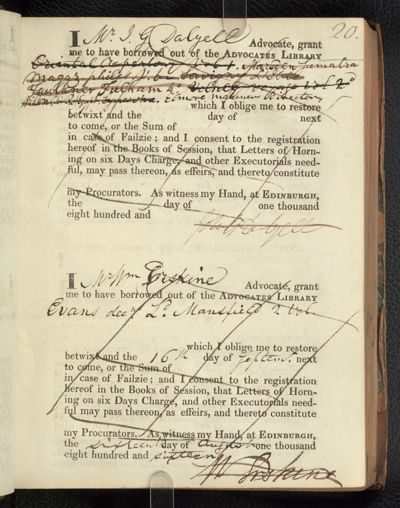 20.
I Mr J. G. Dalyell Advocate, grant
me to have borrowed out of the ADVOCATES LIBRARY
Oriental Repertory Vol 1. Marsden Sumatra
Faulkner Fulham 4.
which I oblige me to restore
betwixt and the day of next
to come, or the Sum of
in case of Failzie; and I consent to the registration
hereof in the Books of Session, that Letters of Horn-
ing on six Days Charge, and other Executorials need-
ful, may pass thereon, as effeirs, and thereto constitute
my Procurators. As witness my Hand, at EDINBURGH,
the day of one thousand
eight hundred and
I Mr Wm Erskine Advocate, grant
me to have borrowed out of the ADVOCATES LIBRARY
Evans dec of Ld. Mansfield 2 vols
which I oblige me to restore
betwixt and the 16th day of Septem. next
to come, or the Sum of
in case of Failzie; and I consent to the registration
hereof in the Books of Session, that Letters of Horn-
ing on six Days Charge, and other Executorials need-
ful may pass thereon, as effeirs, and thereto constitute
my Procurators. As witness my Hand, at EDINBURGH,
the sixteenth day of August one thousand
eight hundred and sixteen
W Erskine